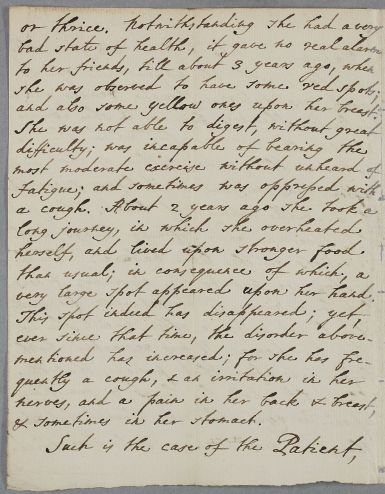 or thrice. Notwithstanding she had a very
bad state of health, it gave no real alarm
to her friends, till about 3 years ago, when
she was observed to have some red spots;
and also some yellow ones upon her breast.
She was not able to digest, without great
difficulty; was incapable of bearing the
most moderate exercise without unheard of
fatigue; and sometimes was oppressed with
a cough. About 2 years ago she took a
long journey, in which she overheated
herself, and lived upon stronger food
than usual; in consequence of which, a
very large spot appeared upon her hand.
This spot indeed has disappeared; yet,
ever since that time, the disorder above-
mentioned has increased; for she has fre-
quently a cough, & an irritation in her
nerves, and a pain in her back & breast,
& sometimes in her stomach.
Such is the case of the Patient,